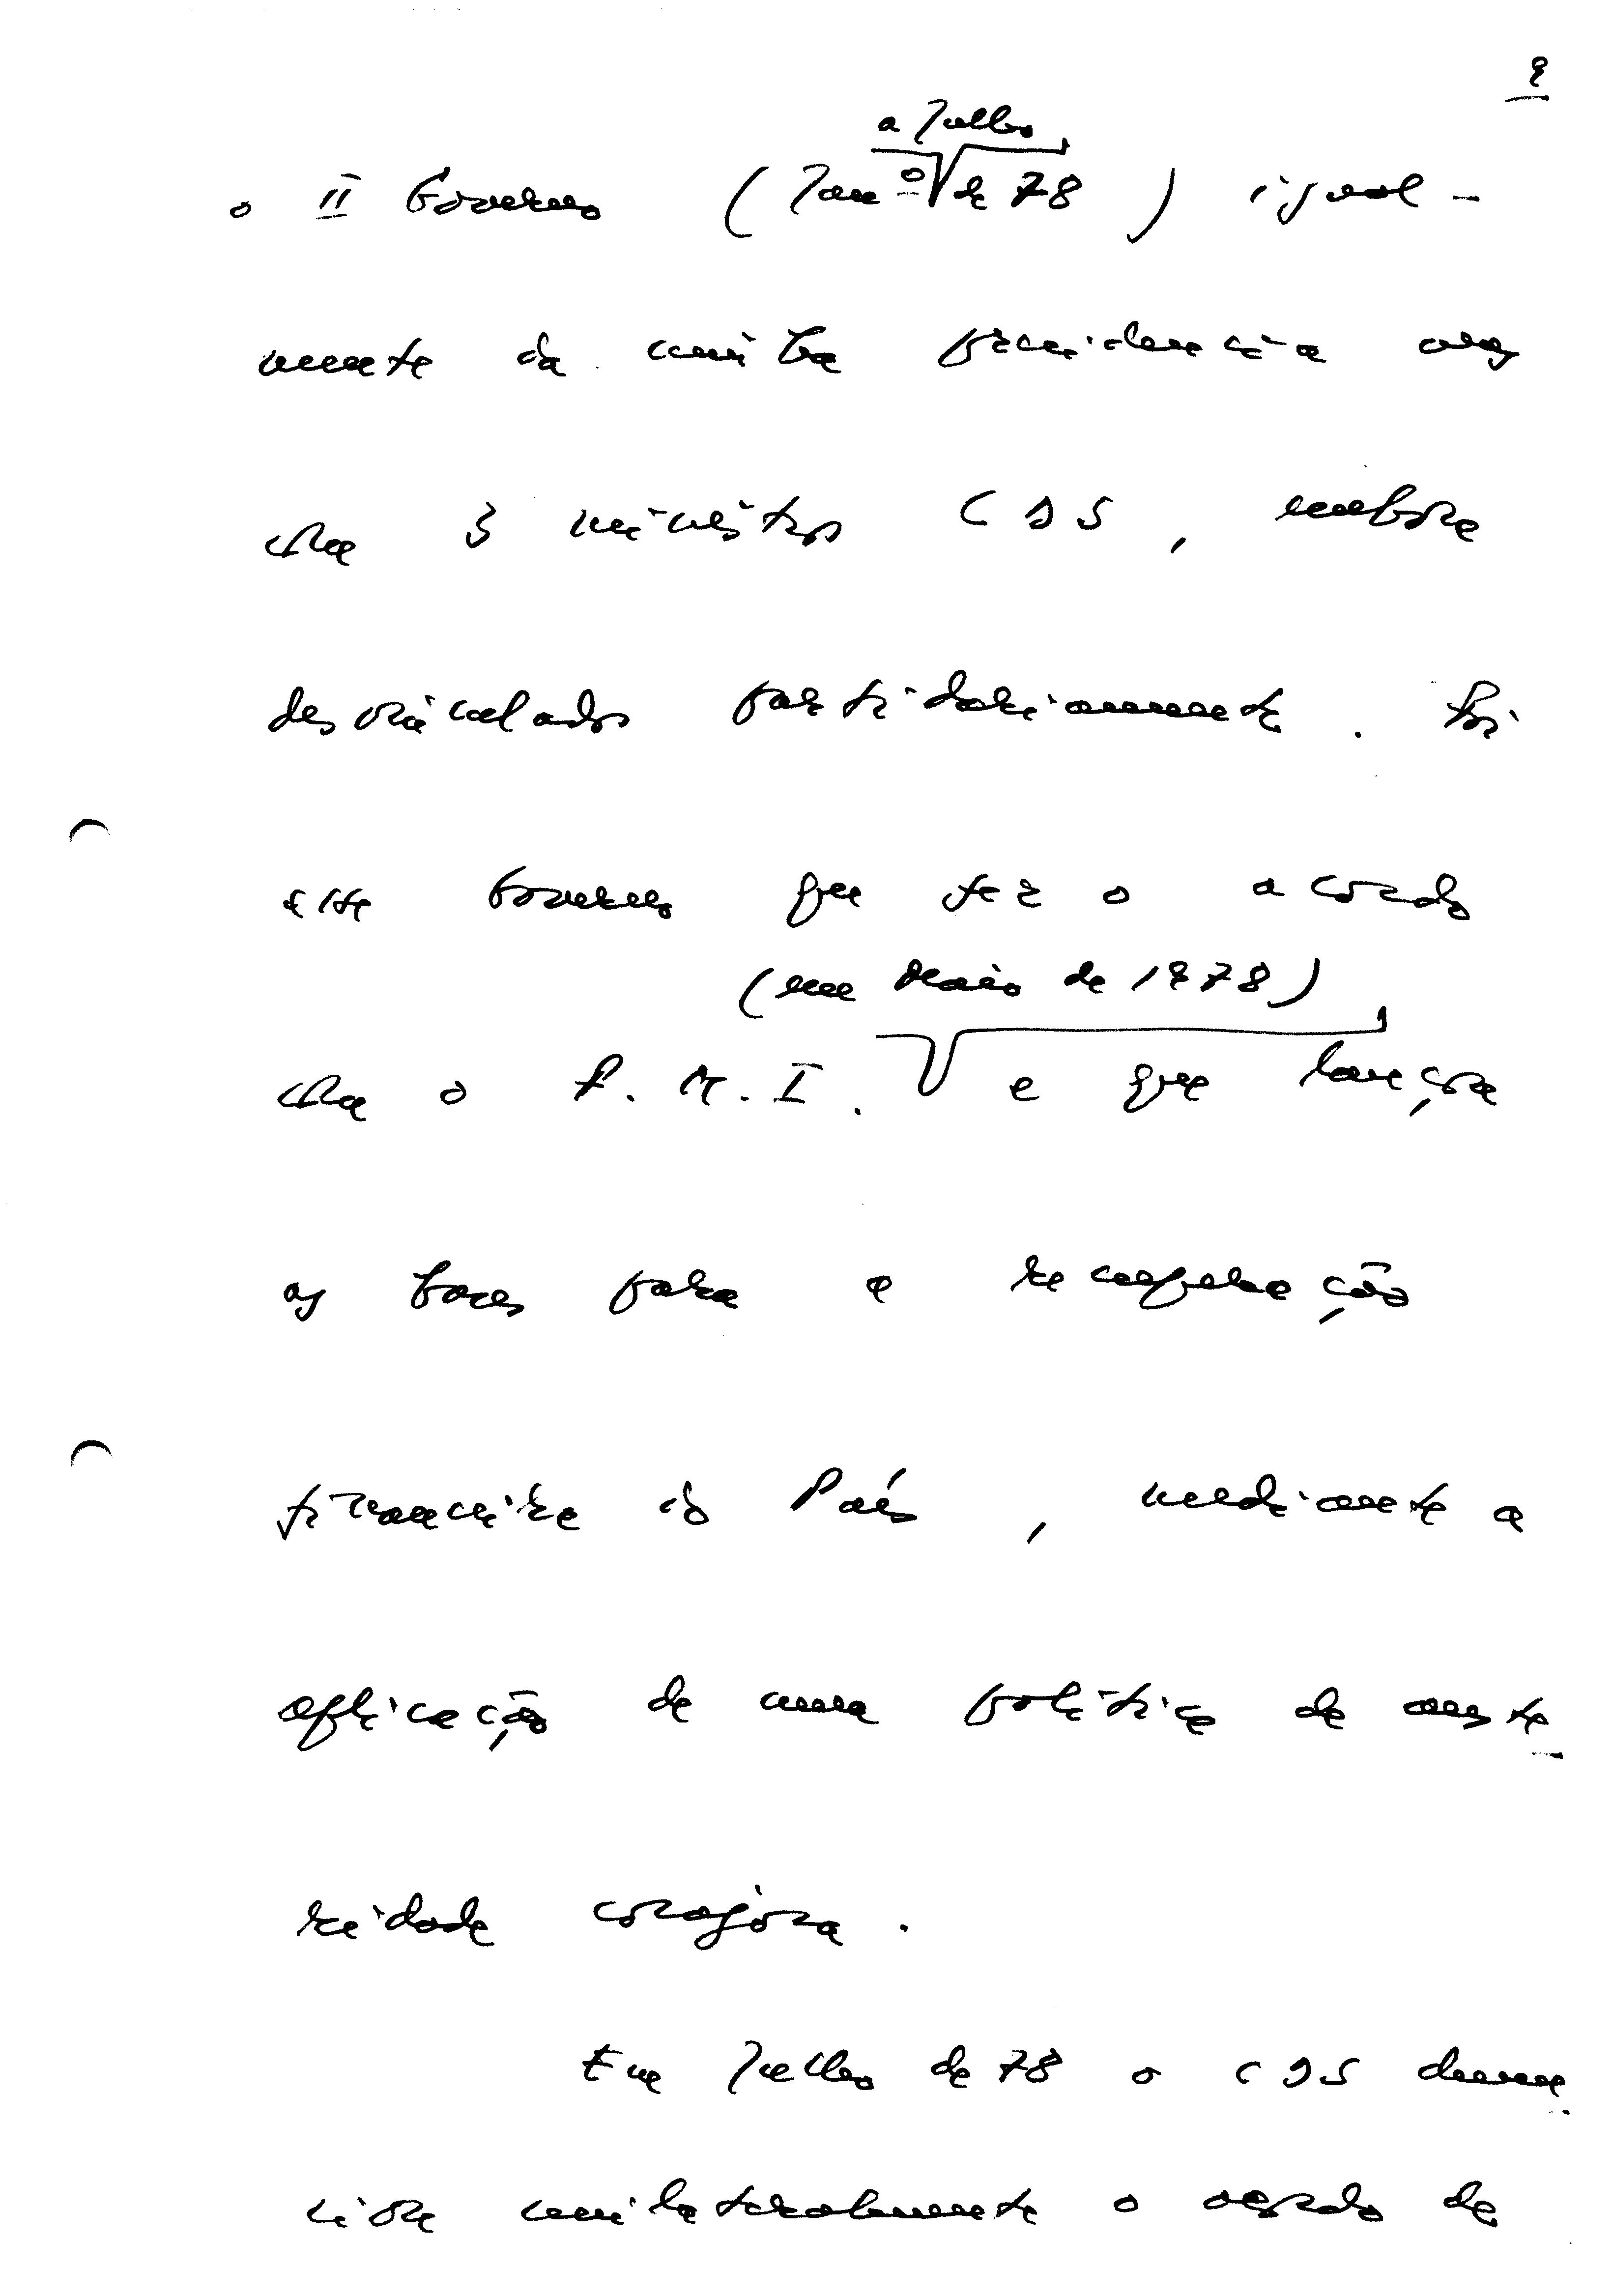 9
a Julho
o II Governo (Janº de 78) igual-
mente da minha presidência mas
com 3 ministros CDS, embora
desvinculados partidariamente. Foi
esse Governo que fez o acordo
(em Maio de 1978)
com o F.M.I. e que lançou
as bases para a recuperação
financeira do País, mediante a
aplicação de uma política de auste-
ridade corajosa.
Em Julho de 78 o CDS denun-
ciou unilateralmente o acordo de